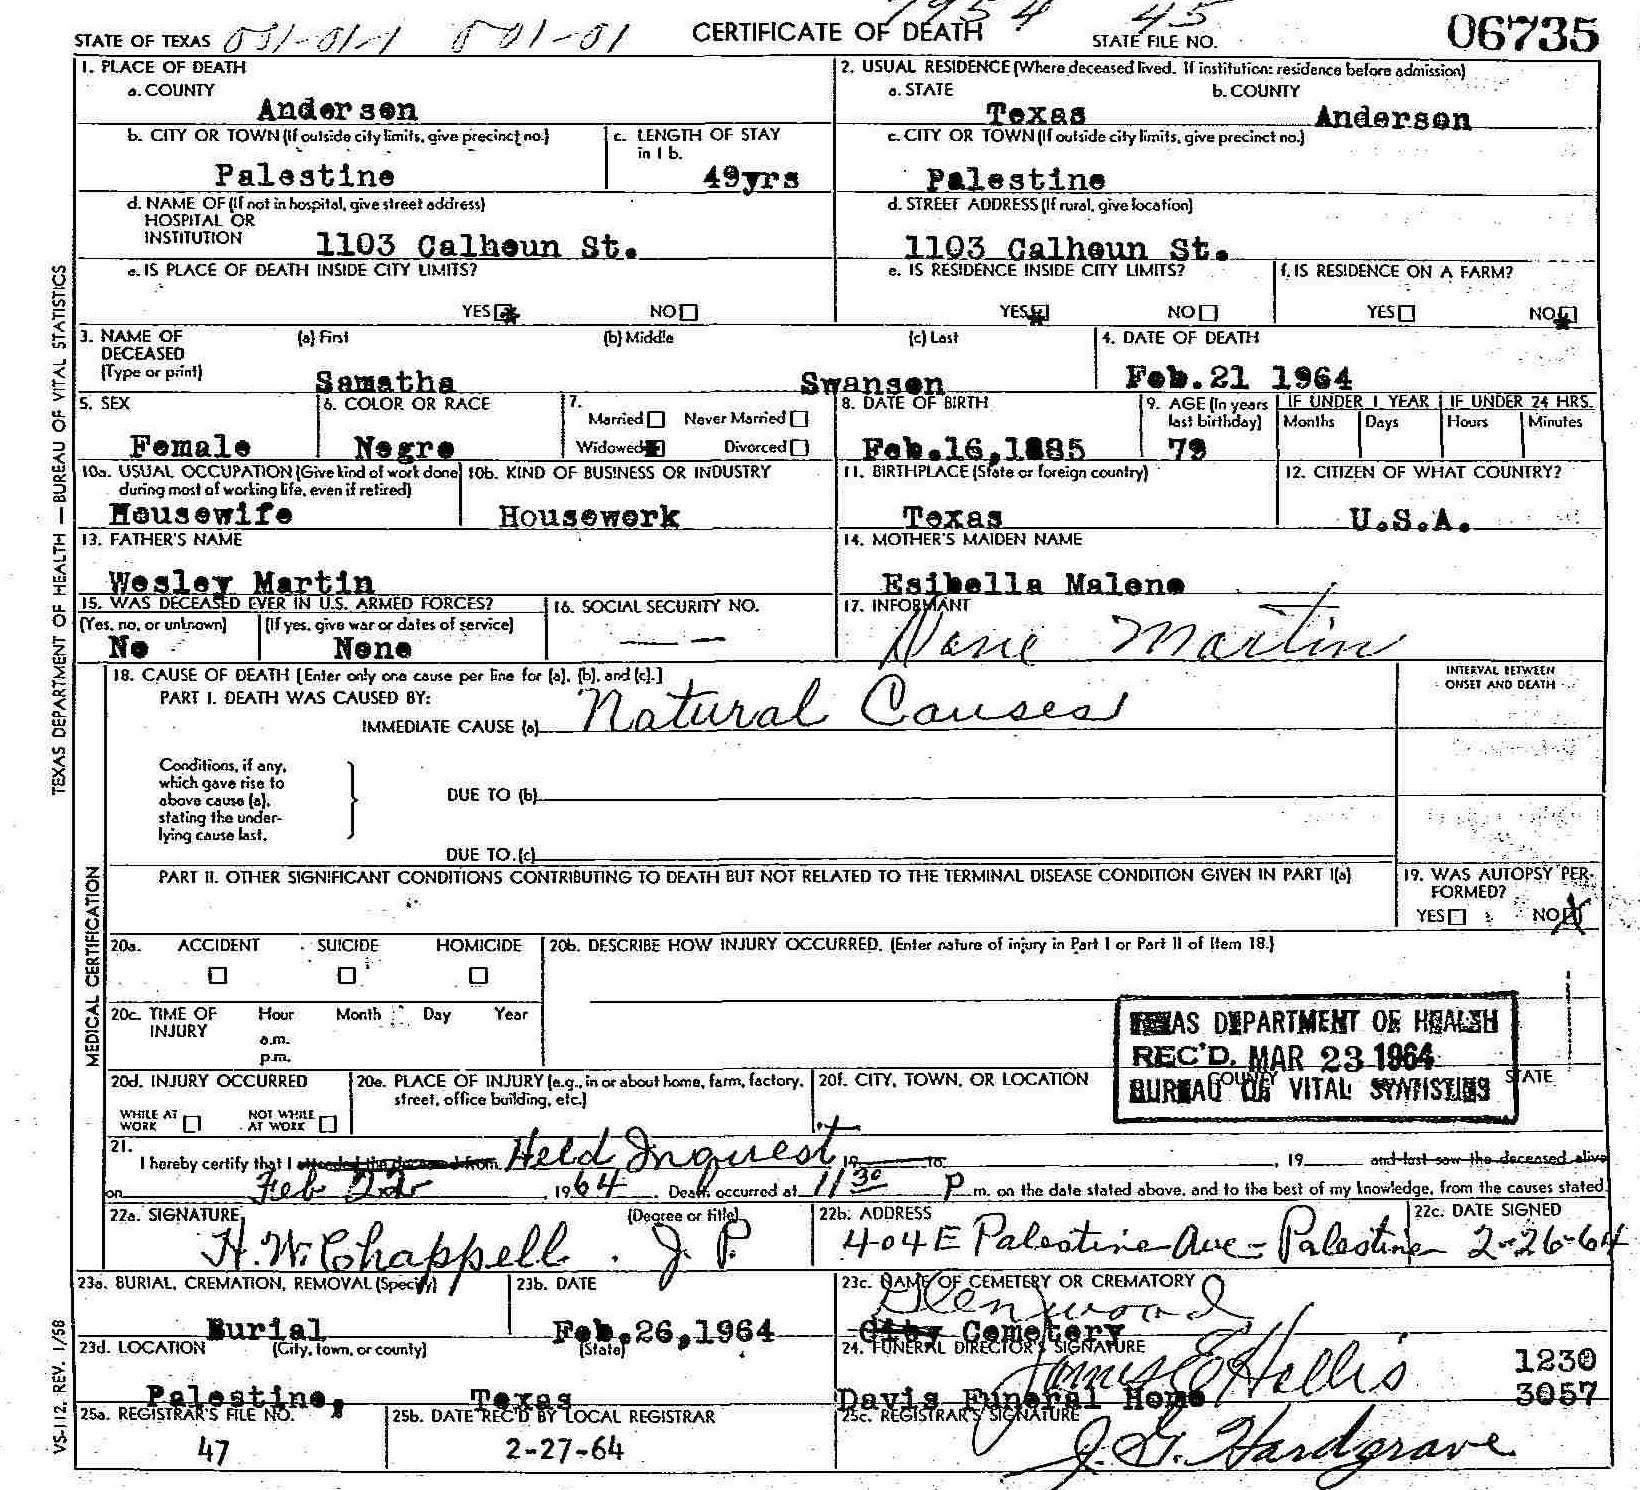 STATE OF TEXAS 031-01-1 001-01 CERTIFICATE OF DEATH 7954 45 STATE FILE NO. 06735
1. PLACE OF DEATH
a. COUNTY
Anderson
2. USUAL RESIDENCE (Where deceased lived. If institution: residence before admission)
a. STATE b. COUNTY
Texas Anderson
b. CITY OR TOWN (If outside city limits, give precinct no.)
Palestine
c. LENGTH OF STAY
in 1 b.
49yrs
c. CITY OR TOWN (If outside city limits, give precinct no.)
Palestine
d. NAME OF (If not in hospital, give street address)
HOSPITAL OR
INSTITUTION 1103 Calhoun St.
d. STREET ADDRESS (If rural, give location)
1103 Calhoun St.
e. IS PLACE OF DEATH INSIDE CITY LIMITS?
YES NO
e. IS RESIDENCE INSIDE CITY LIMITS?
YES NO
f. IS RESIDENCE ON A FARM?
YES NO
3. NAME OF (a) First (b) Middle (c) Last
DECEASED
(Type or print) Samatha Swanson
4. DATE OF DEATH
Feb.21 1964
5. SEX
Female
6. COLOR OR RACE
Negro
7.
Married Never Married
Widowed Divorced
8. DATE OF BIRTH
Feb.16,1885
9. AGE (In years
last birthday)
79
IF UNDER 1 YEAR IF UNDER 24 HRS.
Months Days Hours Minutes
10a. USUAL OCCUPATION (Give kind of work done
during most of working life, even if retired)
Housewife
10b. KIND OF BUSINESS OR INDUSTRY
Housework
11. BIRTHPLACE (State or foreign country)
Texas
12. CITIZEN OF WHAT COUNTRY?
U.S.A.
13. FATHER'S NAME
Wesley Martin
14. MOTHER'S MAIDEN NAME
Esibella Malone
15. WAS DECEASED EVER IN U.S. ARMED FORCES?
(Yes, no, or unknown) (If yes, give war or dates of service)
No None
16. SOCIAL SECURITY NO.
— — –
17. INFORMANT
Martin
18. CAUSE OF DEATH [Enter only one cause per line for (a), (b), and (c).]
PART I. DEATH WAS CAUSED BY:
IMMEDIATE CAUSE (a) Natural Causes
INTERVAL BETWEEN
ONSET AND DEATH
Conditions, if any,
which gave rise to
above cause (a),
stating the under-
lying cause last.
DUE TO (b)
DUE TO (c)
PART II. OTHER SIGNIFICANT CONDITIONS CONTRIBUTING TO DEATH BUT NOT RELATED TO THE TERMINAL DISEASE CONDITION GIVEN IN PART I(a)
19. WAS AUTOPSY PER-
FORMED?
YES NO X
20a. ACCIDENT SUICIDE HOMICIDE
20b. DESCRIBE HOW INJURY OCCURRED. (Enter nature of injury in Part I or Part II of Item 18.)
20c. TIME OF Hour Month Day Year
INJURY a.m.
p.m.
TEXAS DEPARTMENT OF HEALTH
REC'D. MAR 23 1964
BUREAU OF VITAL STATISTICS
20d. INJURY OCCURRED
WHILE AT WORK NOT WHILE AT WORK
20e. PLACE OF INJURY (e.g., in or about home, farm, factory,
street, office building, etc.)
20f. CITY, TOWN, OR LOCATION COUNTY STATE
21.
I hereby certify that I attended the deceased from Held Inquest, 19 to , 19 and last saw the deceased alive
on Feb 22, 1964. Death occurred at 11 30 P m. on the date stated above, and to the best of my knowledge, from the causes stated.
22a. SIGNATURE (Degree or title)
H. W. Chappell. J. P.
22b. ADDRESS
404 E Palestine Ave - Palestine
22c. DATE SIGNED
2-26-64
23a. BURIAL, CREMATION, REMOVAL (Specify)
Burial
23b. DATE
Feb.26,1964
23c. NAME OF CEMETERY OR CREMATORY
Glenwood
City Cemetery
23d. LOCATION (City, town, or county) (State)
Palestine, Texas
24. FUNERAL DIRECTOR'S SIGNATURE
James E Hollis
Davis Funeral Home
1230
3057
25a. REGISTRAR'S FILE NO.
47
25b. DATE REC'D BY LOCAL REGISTRAR
2-27-64
25c. REGISTRAR'S SIGNATURE
J. G. Hardgrave
TEXAS DEPARTMENT OF HEALTH — BUREAU OF VITAL STATISTICS
MEDICAL CERTIFICATION
VS-112, REV. 1/58